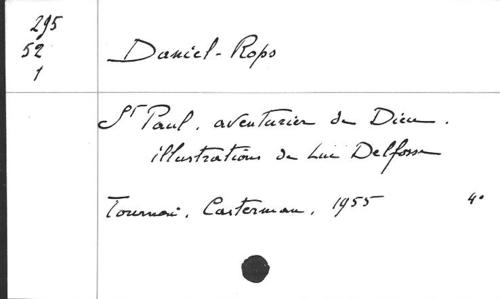 295
52
1
Daniel-Rops
St Paul, aventurier de Dieu.
illustrations de Luc Delfosse
Tournai, Casterman, 1955 4°